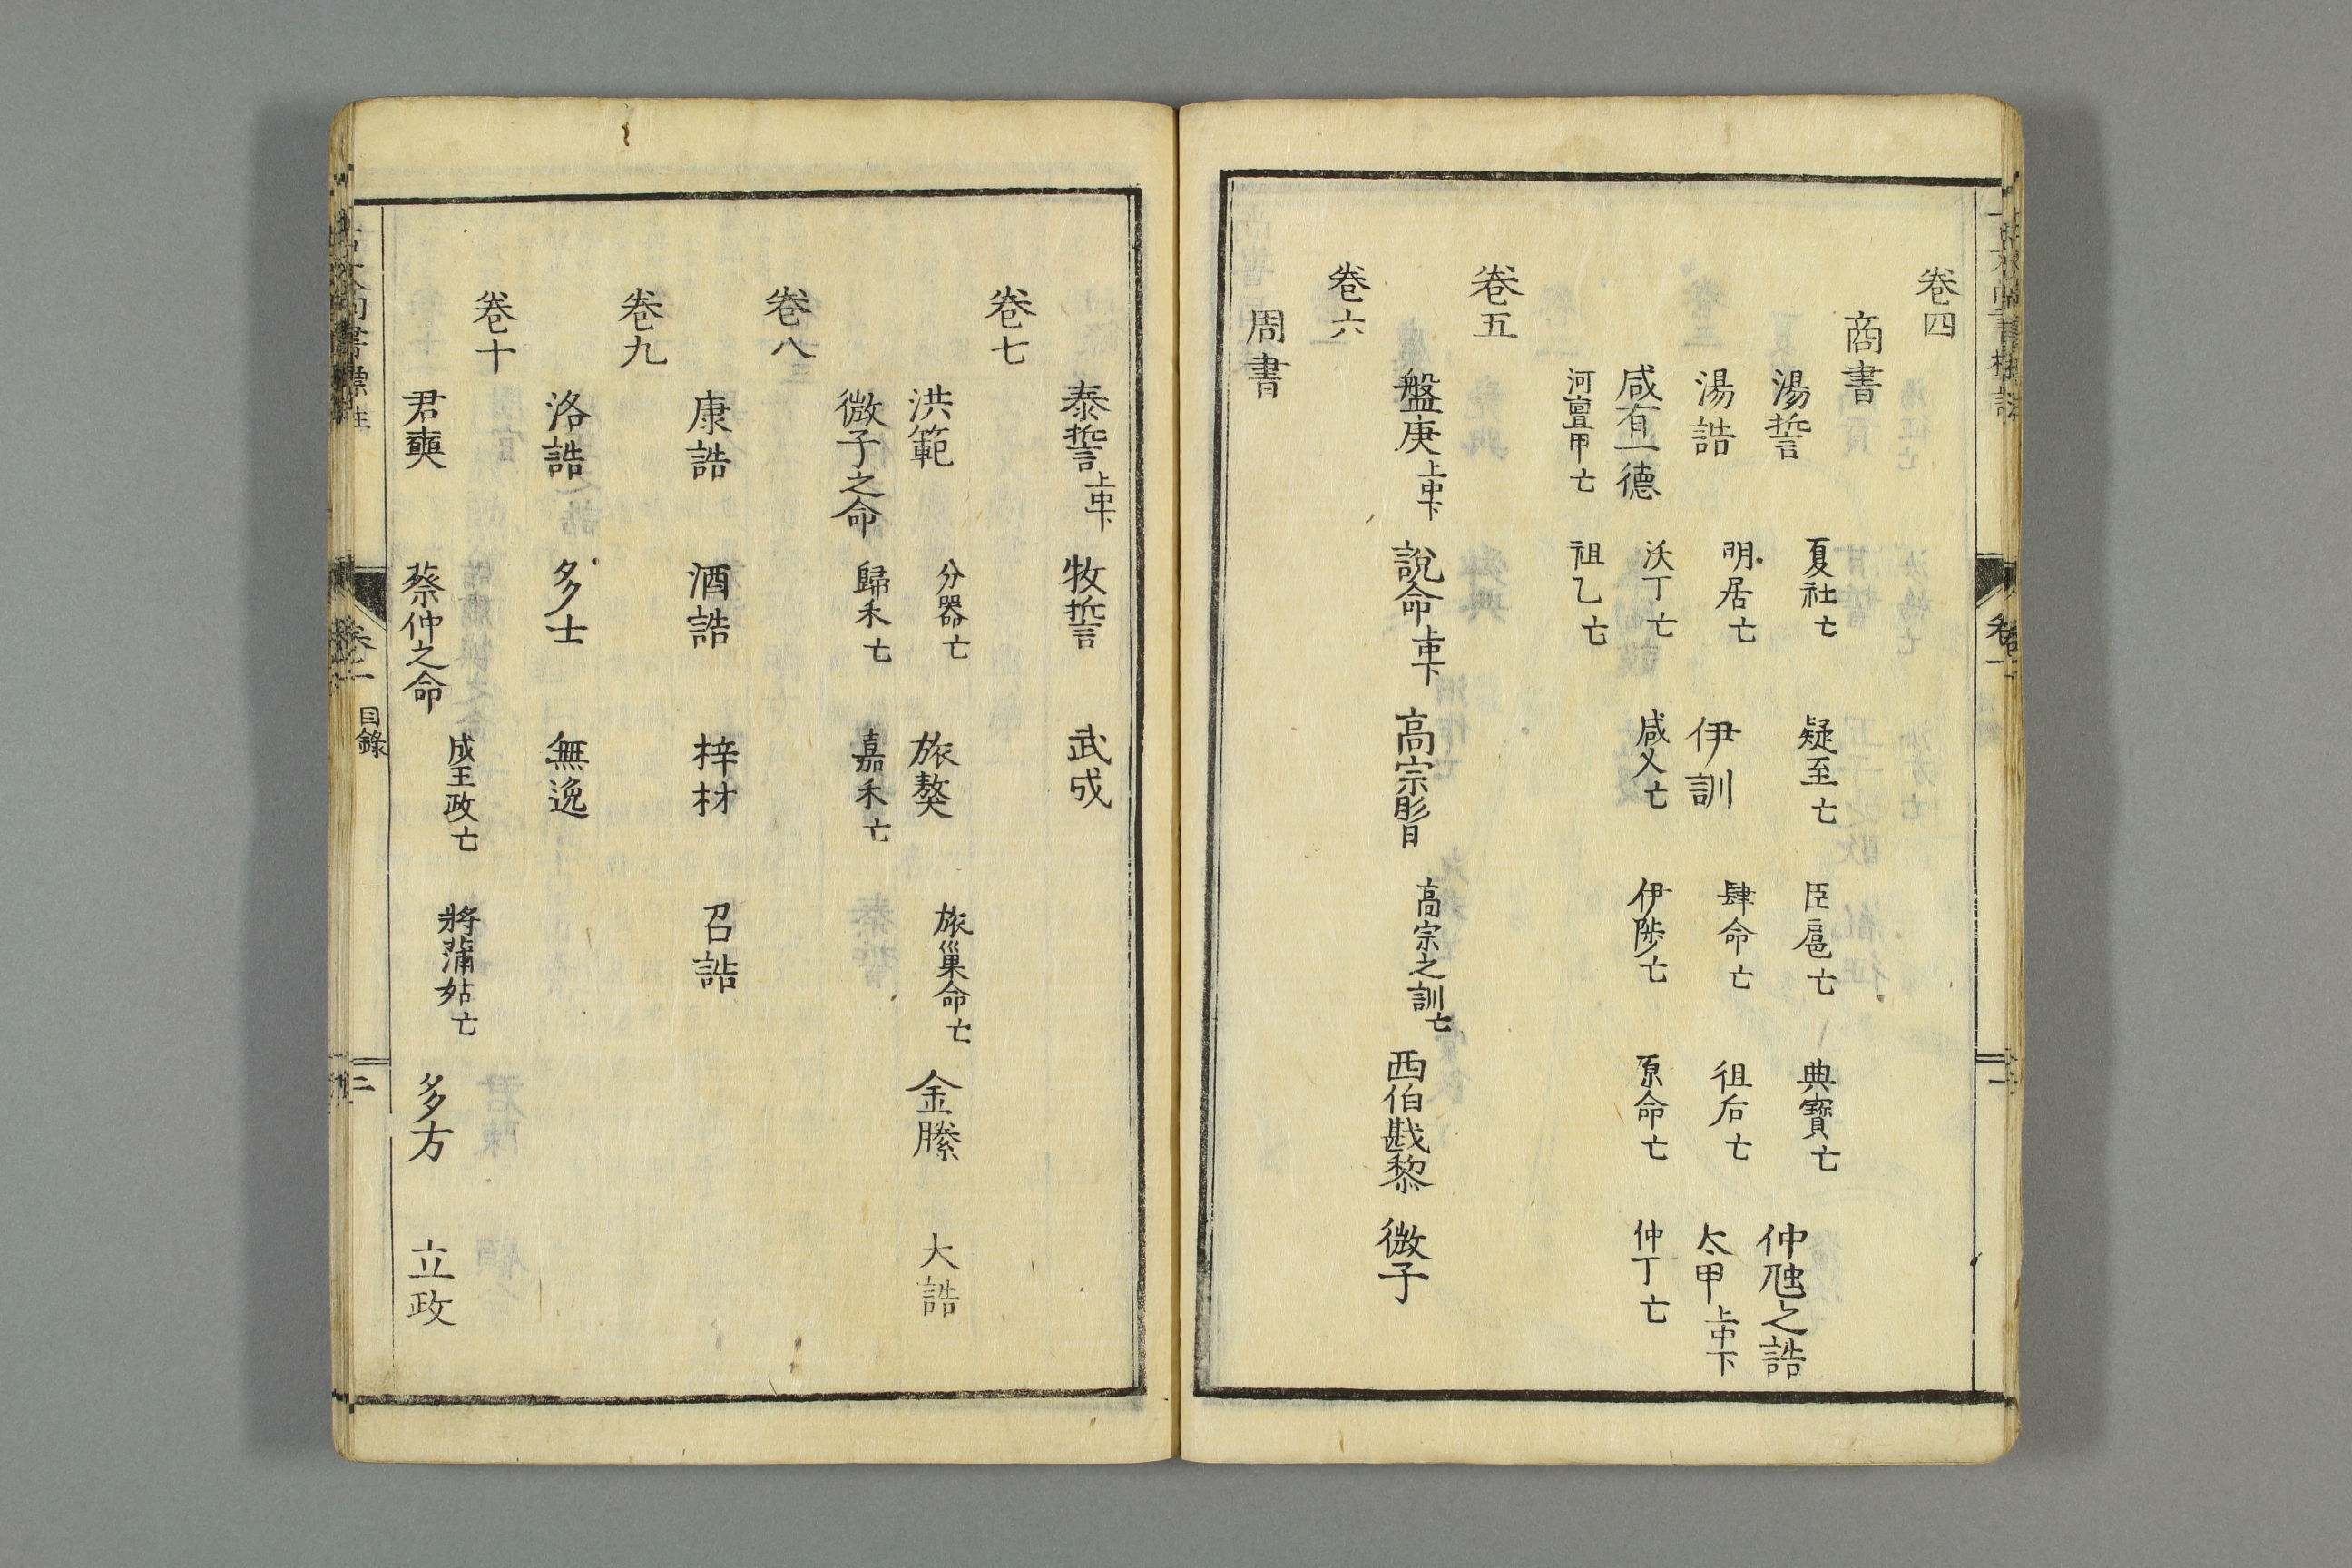 卷四
商書
湯誓 夏社亡 疑至亡 臣扈亡 典寶亡 仲虺之誥
湯誥 明居亡 伊訓 肆命亡 徂后亡 太甲上中下
咸有一德 沃丁亡 咸乂亡 伊陟亡 原命亡 仲丁亡
河亶甲亡 祖乙亡
卷五
盤庚上中下 說命上中下 高宗肜日 高宗之訓亡 西伯戡黎 微子
卷六
周書
泰誓上中下 牧誓 武成
卷七
洪範 分器亡 旅獒 旅巢命亡 金縢 大誥
微子之命 歸禾亡 嘉禾亡
卷八
康誥 酒誥 梓材 召誥
卷九
洛誥 多士 無逸
卷十
君奭 蔡仲之命 成王政亡 將蒲姑亡 多方 立政
卷一 目錄 二